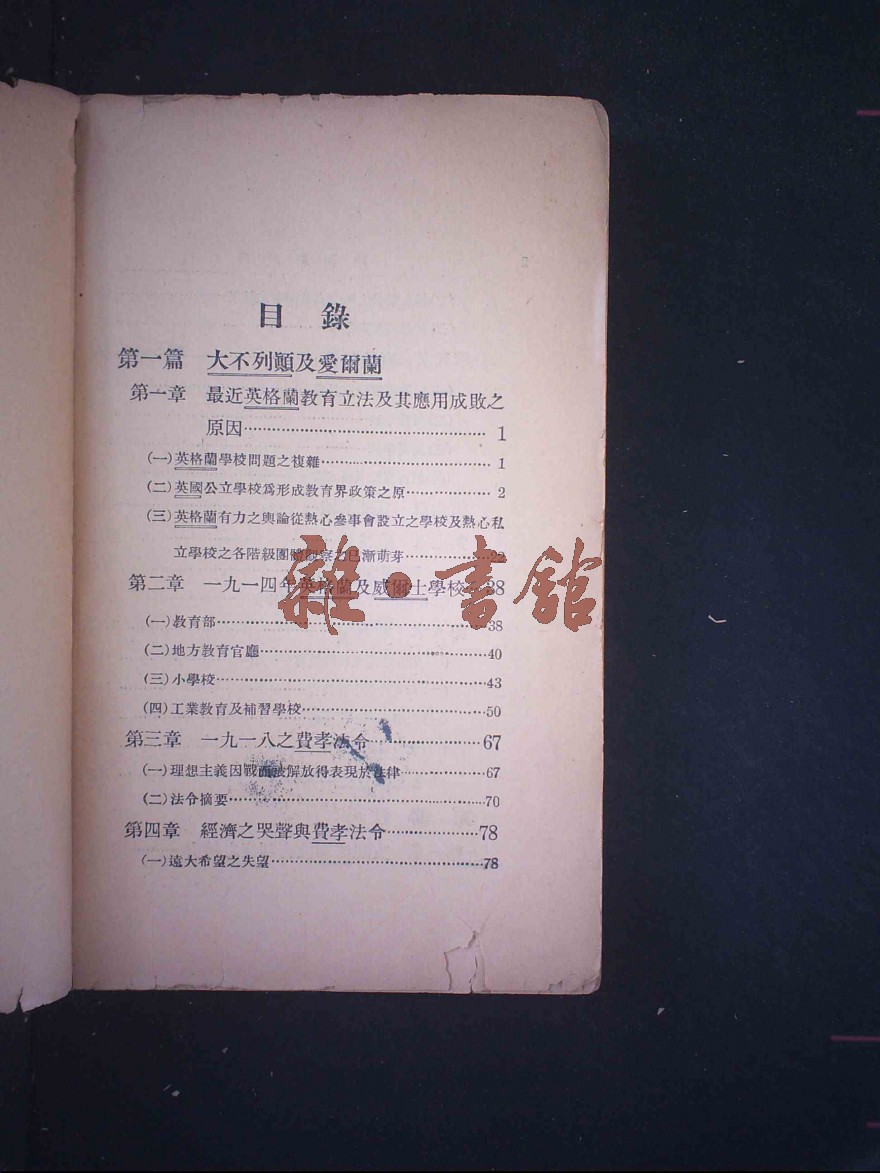 目錄
第一篇 大不列顚及愛爾蘭
第一章 最近英格蘭教育立法及其應用成敗之
原因……………………………………1
(一)英格蘭學校問題之複雜……………………………1
(二)英國公立學校爲形成教育界政策之原………………2
(三)英格蘭有力之輿論從熱心參事會設立之學校及熱心私
立學校之各階級團體觀察力已漸萌芽………………22
第二章 一九一四年英格蘭及威爾士學校…38
(一)教育部……………………………………………38
(二)地方教育官廳……………………………………40
(三)小學校……………………………………………43
(四)工業教育及補習學校……………………………50
第三章 一九一八之費孝法令………………67
(一)理想主義因戰而被解放得表現於法律……………67
(二)法令摘要…………………………………………70
第四章 經濟之哭聲與費孝法令……………78
(一)遠大希望之失望…………………………………78
雜·書館